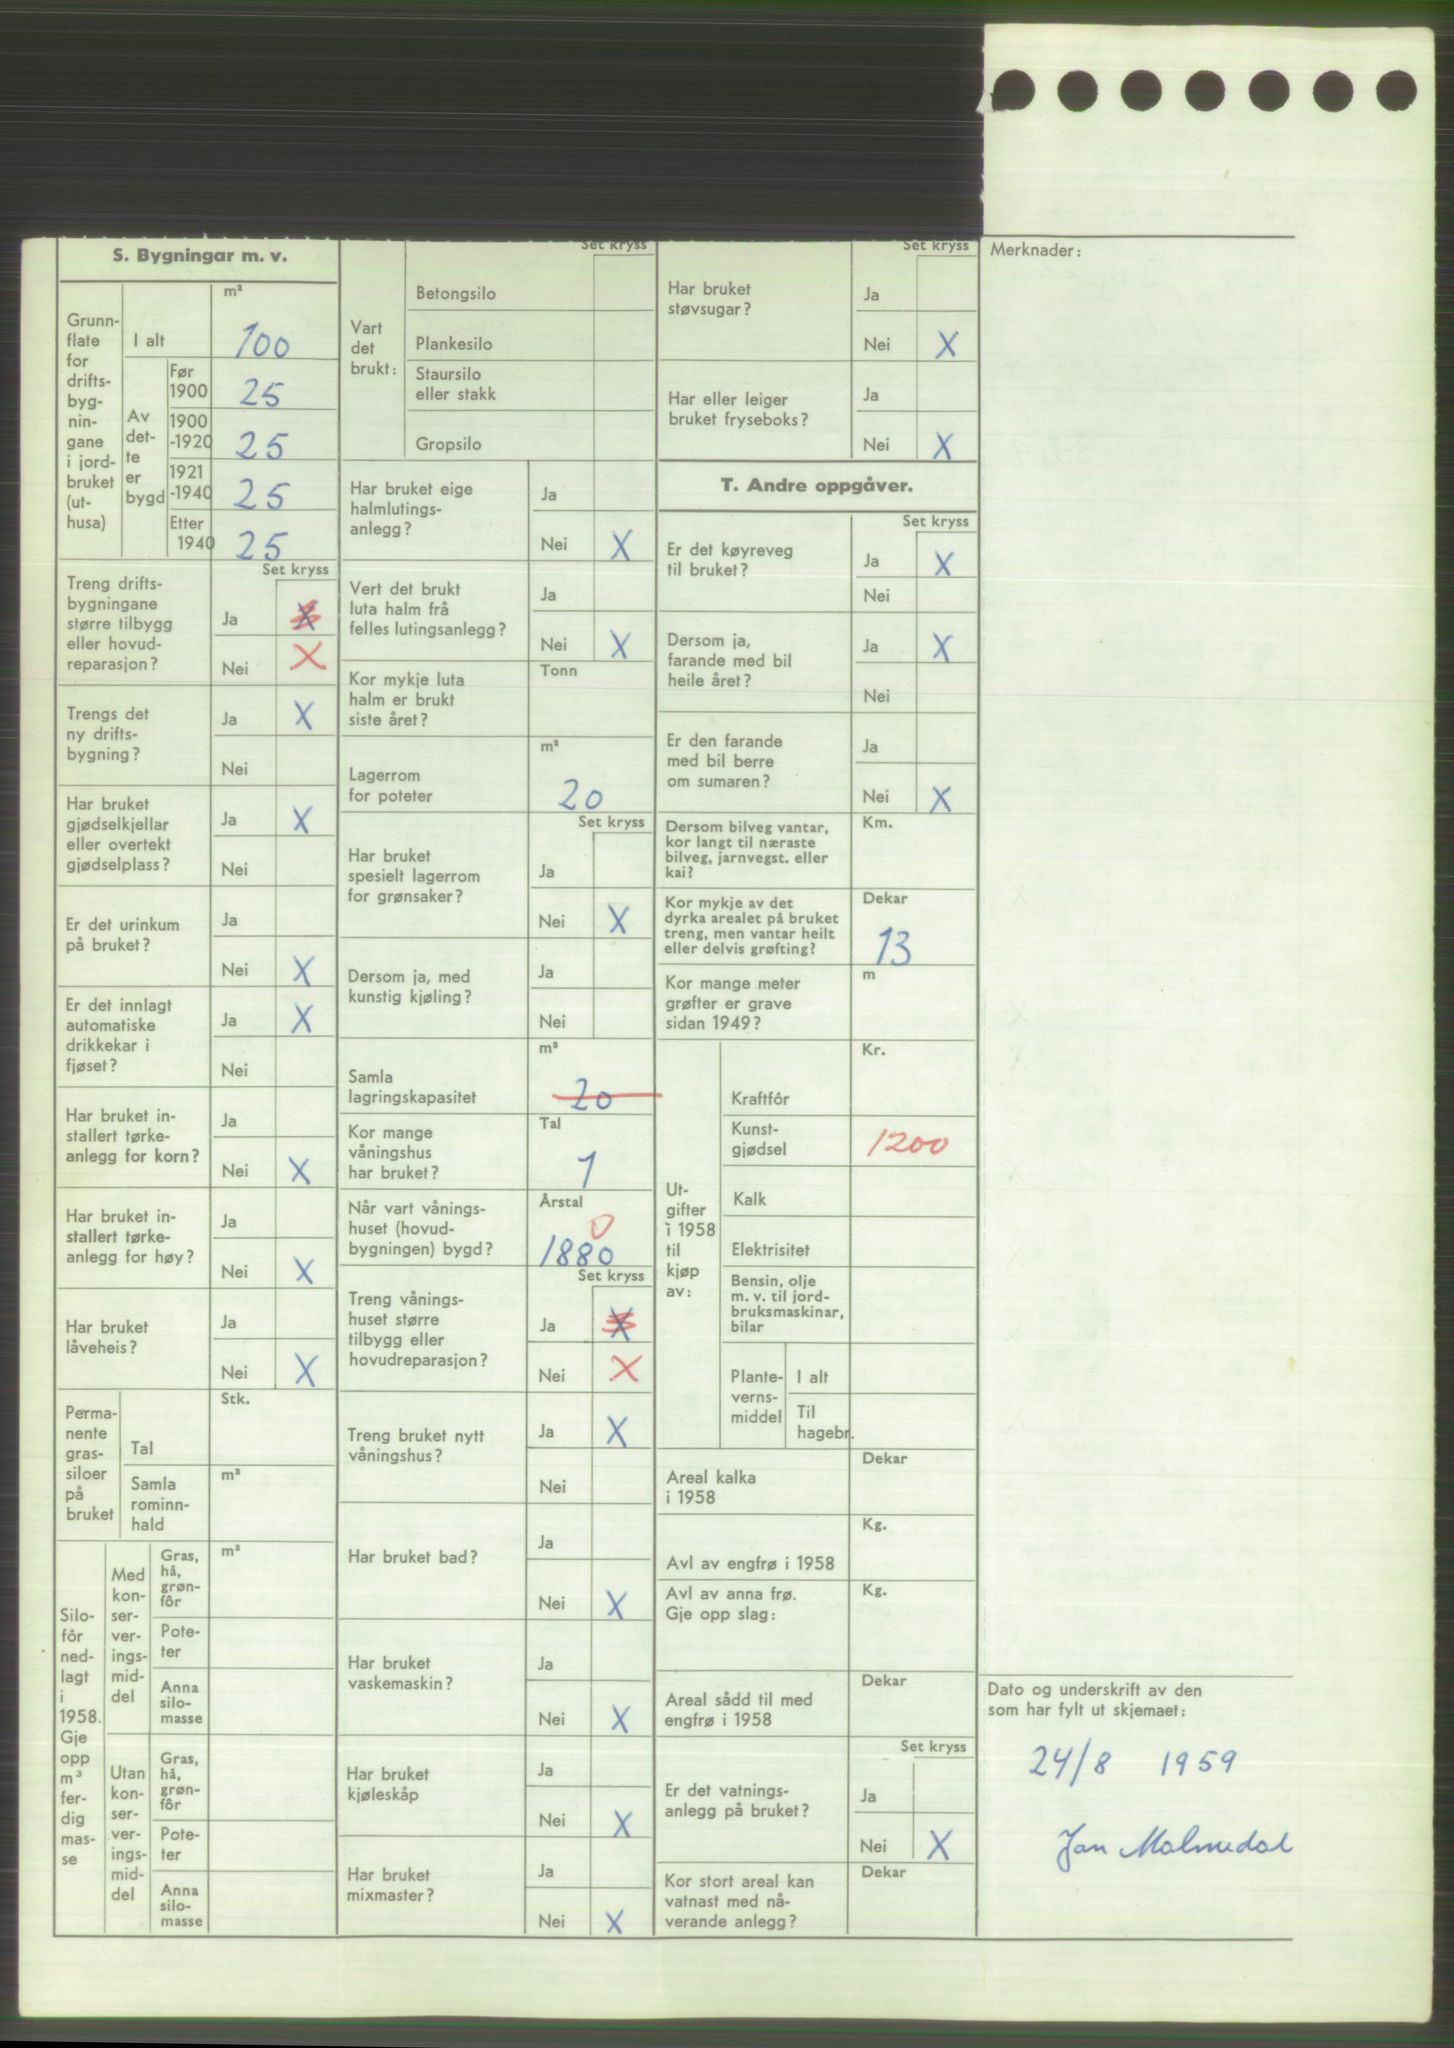 S. Bygningar m. v.
Grunn-
flate
for
drifts-
byg-
nin-
gane
i jord-
bruket
(ut-
husa)
I alt
m²
100
Av
det-
te
er
bygd
Før
1900
25
1900
-1920
25
1921
-1940
25
Etter
1940
25
Set kryss
Treng drifts-
bygningane
større tilbygg
eller hovud-
reparasjon?
Ja X
Nei X
Trengs det
ny drifts-
bygning?
Ja X
Nei
Har bruket
gjødselkjellar
eller overtekt
gjødselplass?
Ja X
Nei
Er det urinkum
på bruket?
Ja
Nei X
Er det innlagt
automatiske
drikkekar i
fjøset?
Ja X
Nei
Har bruket in-
stallert tørke-
anlegg for korn?
Ja
Nei X
Har bruket in-
stallert tørke-
anlegg for høy?
Ja
Nei X
Har bruket
låveheis?
Ja
Nei X
Perma-
nente
gras-
siloer
på
bruket
Tal
Stk.
Samla
rominn-
hald
m³
Silo-
fôr
ned-
lagt
i
1958.
Gje
opp
m³
fer-
dig
mas-
se
Med
kon-
ser-
ver-
ings-
mid-
del
Gras,
hå,
grøn-
fôr
m³
Pote-
ter
Anna
silo-
masse
Utan
kon-
ser-
ver-
ings-
mid-
del
Gras,
hå,
grøn-
fôr
Pote-
ter
Anna
silo-
masse
Set kryss
Vart
det
brukt:
Betongsilo
Plankesilo
Staursilo
eller stakk
Gropsilo
Har bruket eige
halmlutings-
anlegg?
Ja
Nei X
Vert det brukt
luta halm frå
felles lutingsanlegg?
Ja
Nei X
Kor mykje luta
halm er brukt
siste året?
Tonn
Lagerrom
for poteter
m³
20
Set kryss
Har bruket
spesielt lagerrom
for grønsaker?
Ja
Nei X
Dersom ja, med
kunstig kjøling?
Ja
Nei
Samla
lagringskapasitet
m³
20
Kor mange
våningshus
har bruket?
Tal
1
Når vart vånings-
huset (hovud-
bygningen) bygd?
Årstal
0
1880
Set kryss
Treng vånings-
huset større
tilbygg eller
hovudreparasjon?
Ja X
Nei X
Treng bruket nytt
våningshus?
Ja X
Nei
Har bruket bad?
Ja
Nei X
Har bruket
vaskemaskin?
Ja
Nei X
Har bruket
kjøleskåp
Ja
Nei X
Har bruket
mixmaster?
Ja
Nei X
Set kryss
Har bruket
støvsugar?
Ja
Nei X
Har eller leiger
bruket fryseboks?
Ja
Nei X
T. Andre oppgåver.
Set kryss
Er det køyreveg
til bruket?
Ja X
Nei
Dersom ja,
farande med bil
heile året?
Ja X
Nei
Er den farande
med bil berre
om sumaren?
Ja
Nei X
Dersom bilveg vantar,
kor langt til næraste
bilveg, jarnvegst. eller
kai?
Km.
Kor mykje av det
dyrka arealet på bruket
treng, men vantar heilt
eller delvis grøfting?
Dekar
13
Kor mange meter
grøfter er grave
sidan 1949?
m
Ut-
gifter
i 1958
til
kjøp
av:
Kr.
Kraftfôr
Kunst-
gjødsel
1200
Kalk
Elektrisitet
Bensin, olje
m. v. til jord-
bruksmaskinar,
bilar
Plante-
verns-
middel
I alt
Til
hagebr.
Areal kalka
i 1958
Dekar
Avl av engfrø i 1958
Kg.
Avl av anna frø.
Gje opp slag:
Kg.
Areal sådd til med
engfrø i 1958
Dekar
Set kryss
Er det vatnings-
anlegg på bruket?
Ja
Nei X
Kor stort areal kan
vatnast med nå-
verande anlegg?
Dekar
Merknader:
Dato og underskrift av den
som har fylt ut skjemaet:
24/8 1959
Jan Malmedal